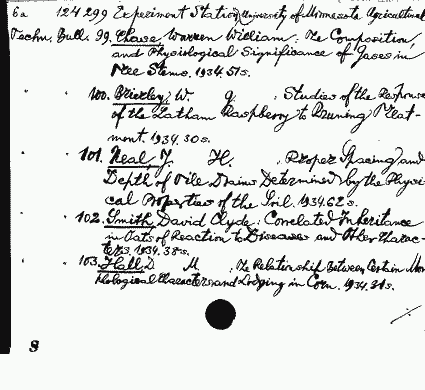 6a 124299 Experiment Station, University of Minnesota Agricultural
Techn. Bull. 99. Chase, Warren William. The Composition,
and Physiological Significance of Gases in
Tree Stems. 1934. 51 s.
" " 100. Brierley, W. G. : Studies of the Response
of the Latham Raspberry to Pruning Treat-
ment. 1934. 30 s.
" " 101. Neal, J. H. : Proper Spacing and
Depth of Tile Drains Determined by the Physi-
cal Properties of the Soil. 1934. 62 s.
" " 102. Smith, David Clyde: Correlated Inheritance
in Oats of Reaction to Diseases and Other Charac-
ters. 1934. 38 s.
" " 103. Hall, D. M. : The Relationship Between Certain Mor-
phological Characters and Lodging in Corn. 1934. 31 s.
8